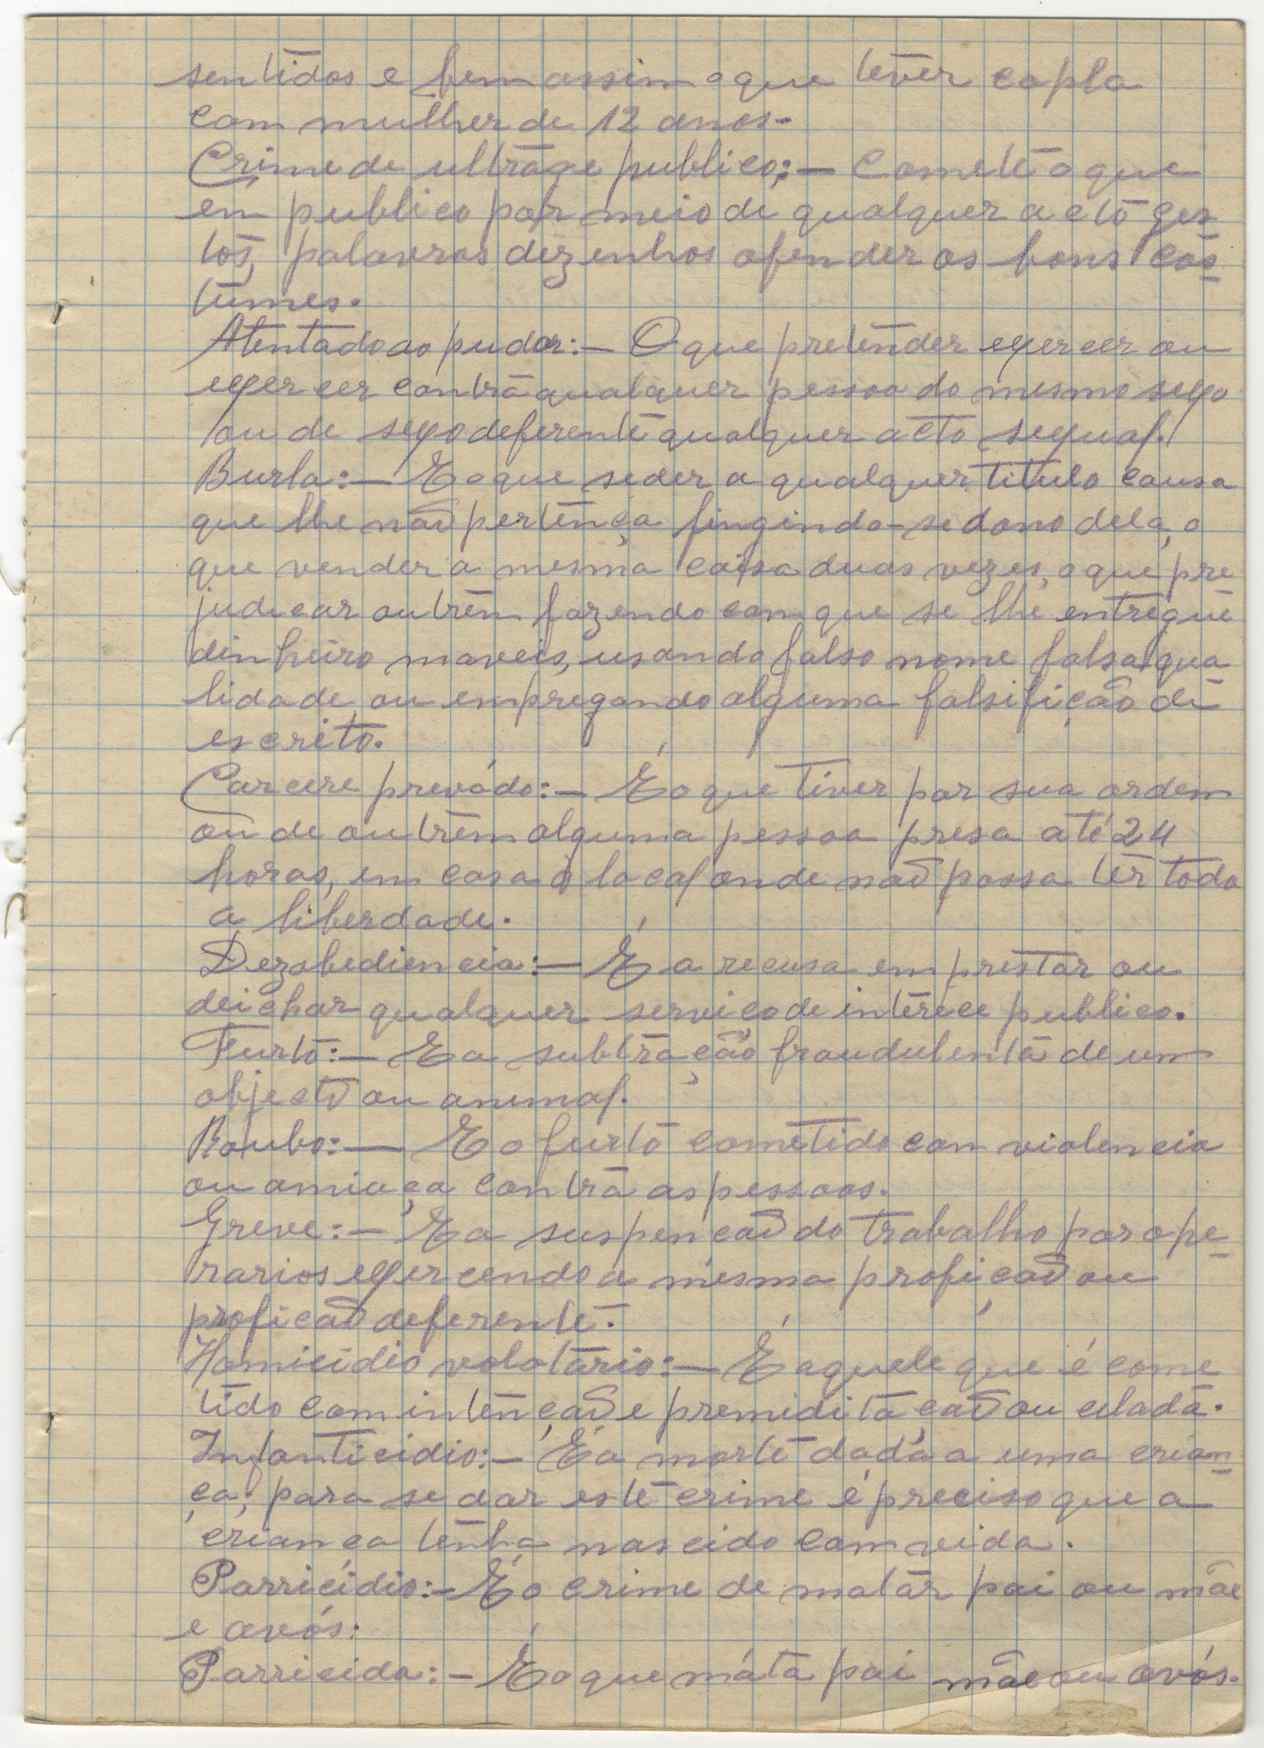 sentidos e bem assim o que tever copla
com mulher de 12 anos.
Crime de ultrage publico:— Cometê o que
em publico por meio de qualquer acto ges
tos, palavras dezenhos ofender os bons cos-
tumes.
Atentado ao pudor:— O que pretender exercer ou
exercer contra qualquer pessoa do mesmo sexo
ou de sexo deferente qualquer acto sexual.
Burla:— E o que seder a qualquer titulo causa
que lhe não pertença fingindo-se dono dela, o
que vender a mesma coisa duas vezes, o que pre
judicar outrem fazendo com que se lhe entregue
dinheiro moveis, usando falso nome falsa qua
lidade ou empregando alguma falsifição de
escrito.
Carcere prevádo:— É o que tiver por sua ordem
ou de outrem alguma pessoa presa até 24
horas, em casa ó local onde não possa ter toda
a liberdade.
Dezobediencia:— É a recusa em prestar ou
deichar qualquer serviço de interece publico.
Furto:— E a subtração fraudulenta de um
objecto ou animal.
Roubo:— E o furto cometido com violencia
ou amiaça contra as pessoas.
Greve:— E a suspenção do trabalho por ope-
rarios exercendo a mesma profição ou
profição deferente.
Homicidio volotario:— É aquele que é come
tido com intenção e premiditação ou cilada.
Infanticidio:— É a morte dada a uma crian-
ça, para se dar este crime é preciso que a
criança tenha nascido com vida.
Parricídio:— É o crime de matar pai ou mãe
e avós:
Parricida:— É o que máta pai mãe ou avós.